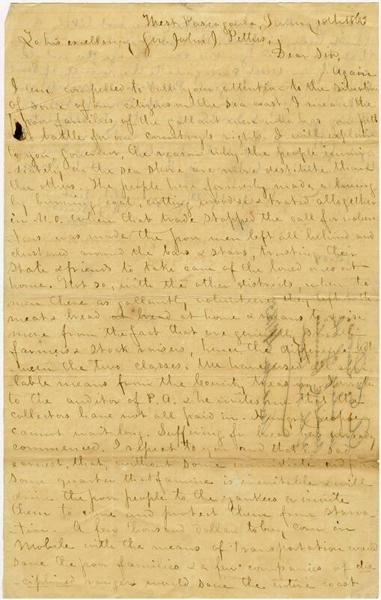 West Pascagoula, January 18th 1863
To his excellency Gov. John J. Pettus,
Dear Sir,
Again
I am compelled to call your attention to the situation
of some of our citizens on the sea coast, I mean the
poor families of the gallant men who has gone forth
to battle for our country's rights. I will explain
to you, Governor, the reason why the people
on the sea shore are more destitute than
the others. The people here formerly made a living
by burning coal, cutting wood & traded altogether
in N.O. When that trade stopped the call for volun-
teers was made the poor men left all behind and
clustered around the bars & stars, trusting their
State & friends to take care of the loved ones at
home. Not so, with the other districts, where the
men there as gallantly volunteered they left
meat & bread at home & means to raise
more from the fact that are generally
farmers & stock raisers, hence the difference be-
tween the two classes. We have used all
lable means from the bounty
to the auditor of P.A. & he writes me that the
collectors have not all paid in. The people
cannot wait long. Suffering has already
commenced. I repeat to you and that in sad
earnest, that without some immediate aid
some quarter that famine is inevitable & will
drive the poor people to the yankees & invite
them to come and protect them from starva-
tion. A few thousand dollars to buy corn in
Mobile with the means of transportation would
save the poor families & a few companies of dis-
ciplined rangers would save the entire coast